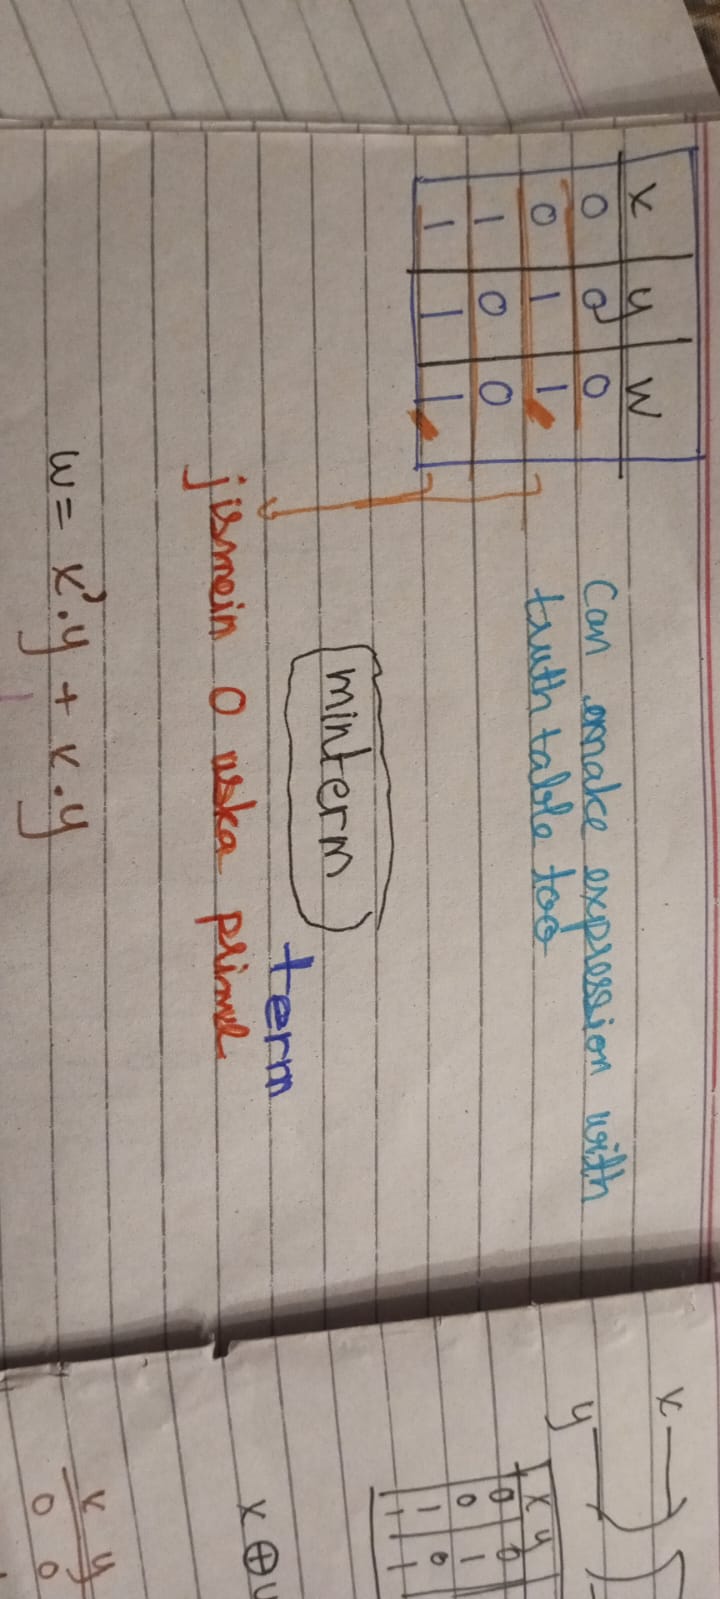 x y w
0 0 0
0 1 1
1 0 0
1 1 1
Can make expression with
truth table too
minterm
term
jismein 0 uska prime
w = x'.y + x.y
x
y
x y
0 0
0 1
1 0
1 1
x ⊕ y
x y
0 0